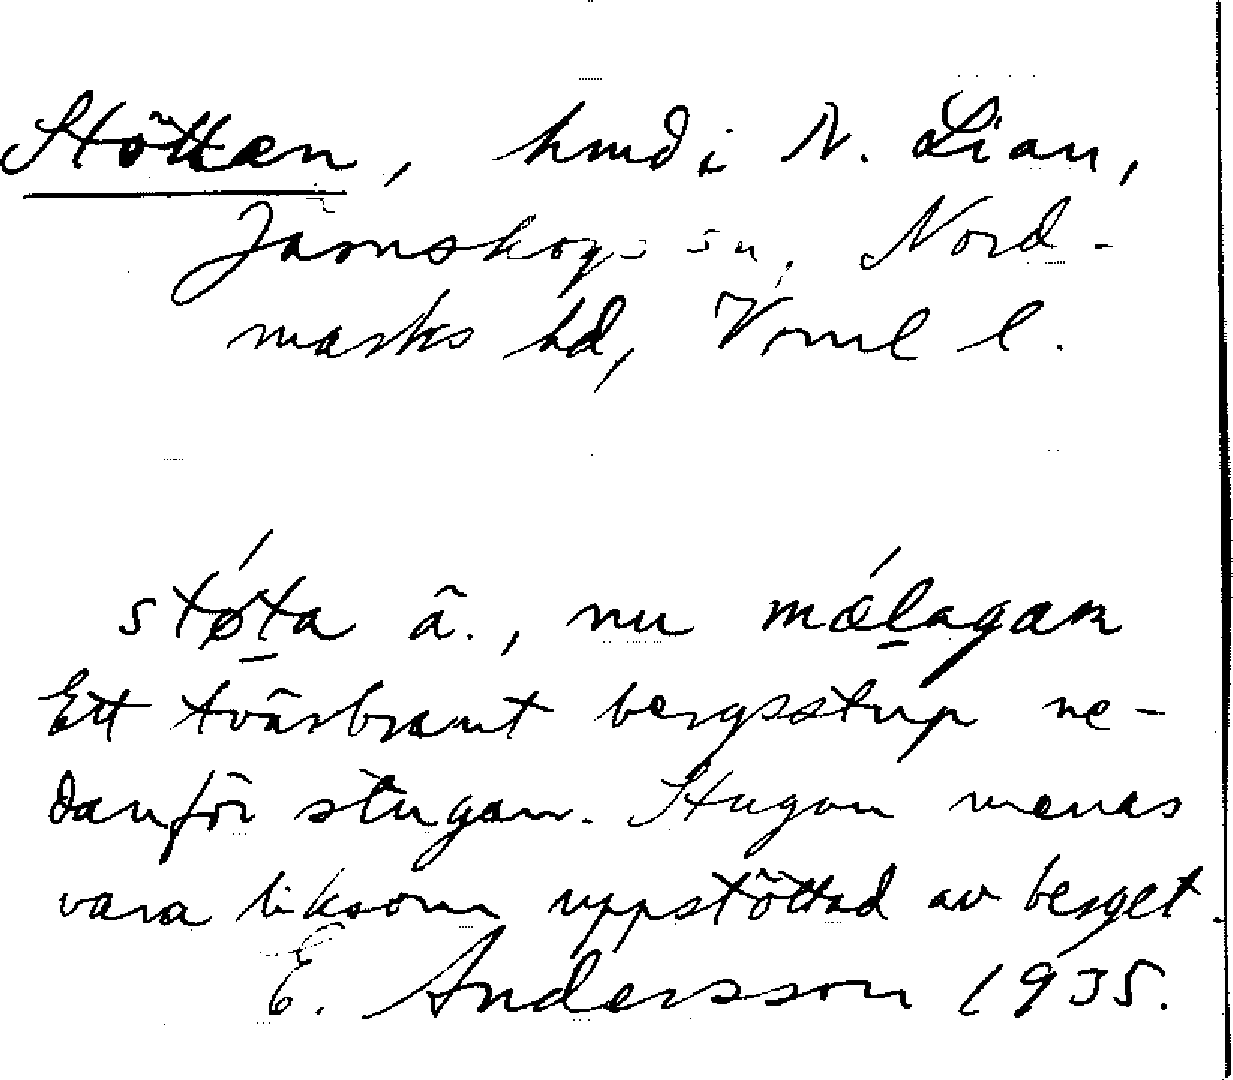 Stötten, hmd i N. Lian,
Järnskogs sn, Nord-
marks hd, Vrml l.
stǿta ä., nu mǽlagan
Ett tvärbrant bergsstup ne-
danför stugan. Stugan menas
vara liksom uppstöttad av berget.
E. Andersson 1935.